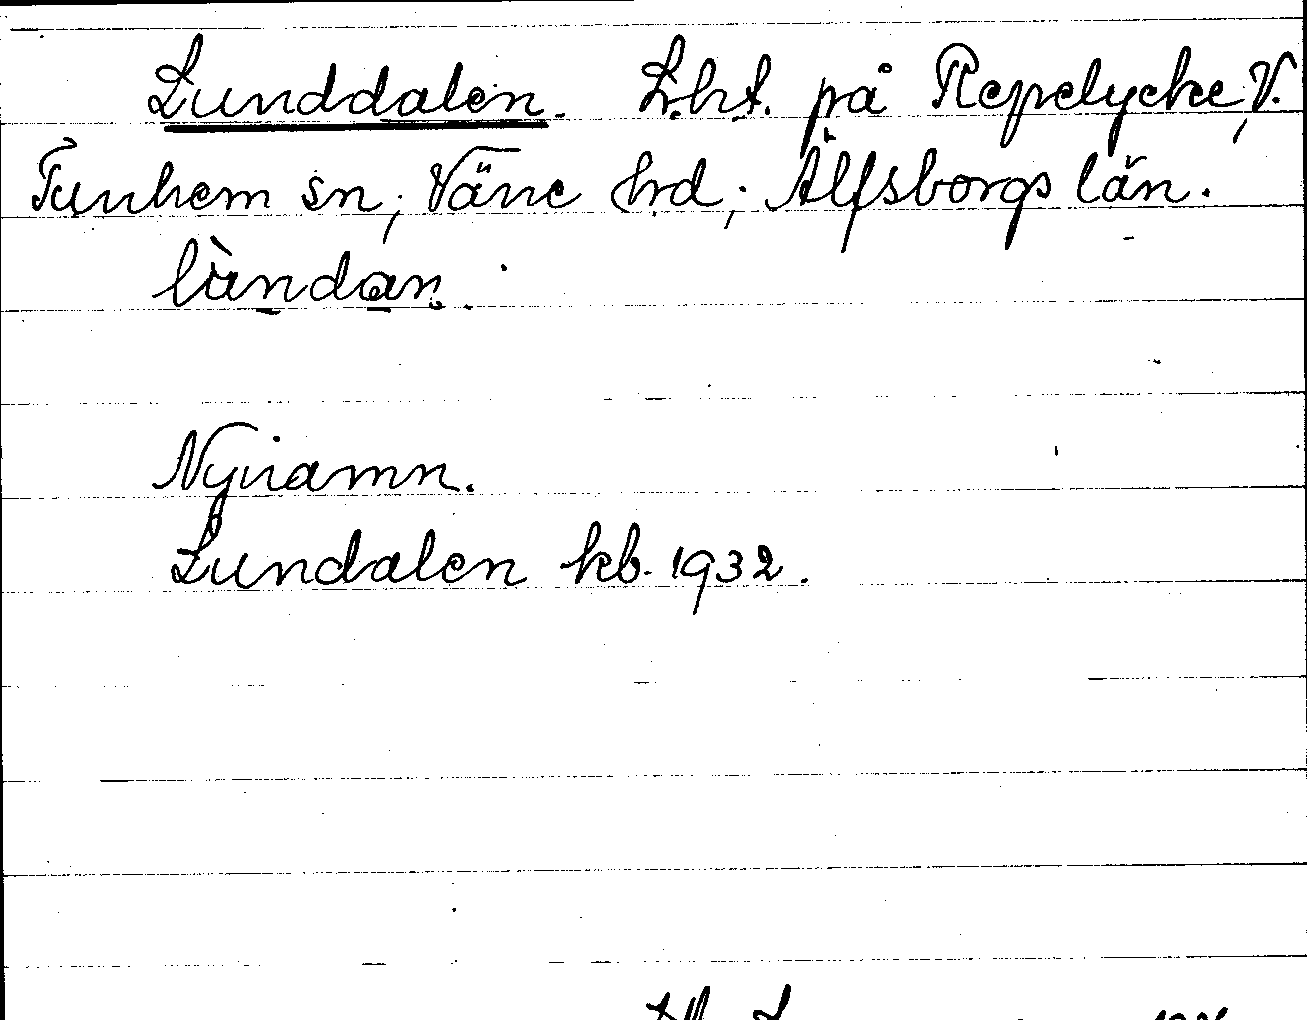 Lunddalen. Lht. på Repelycke, V.
Tunhem sn, Väne hrd, Älfsborgs län.
Nynamn.
Lundalen kb. 1932.